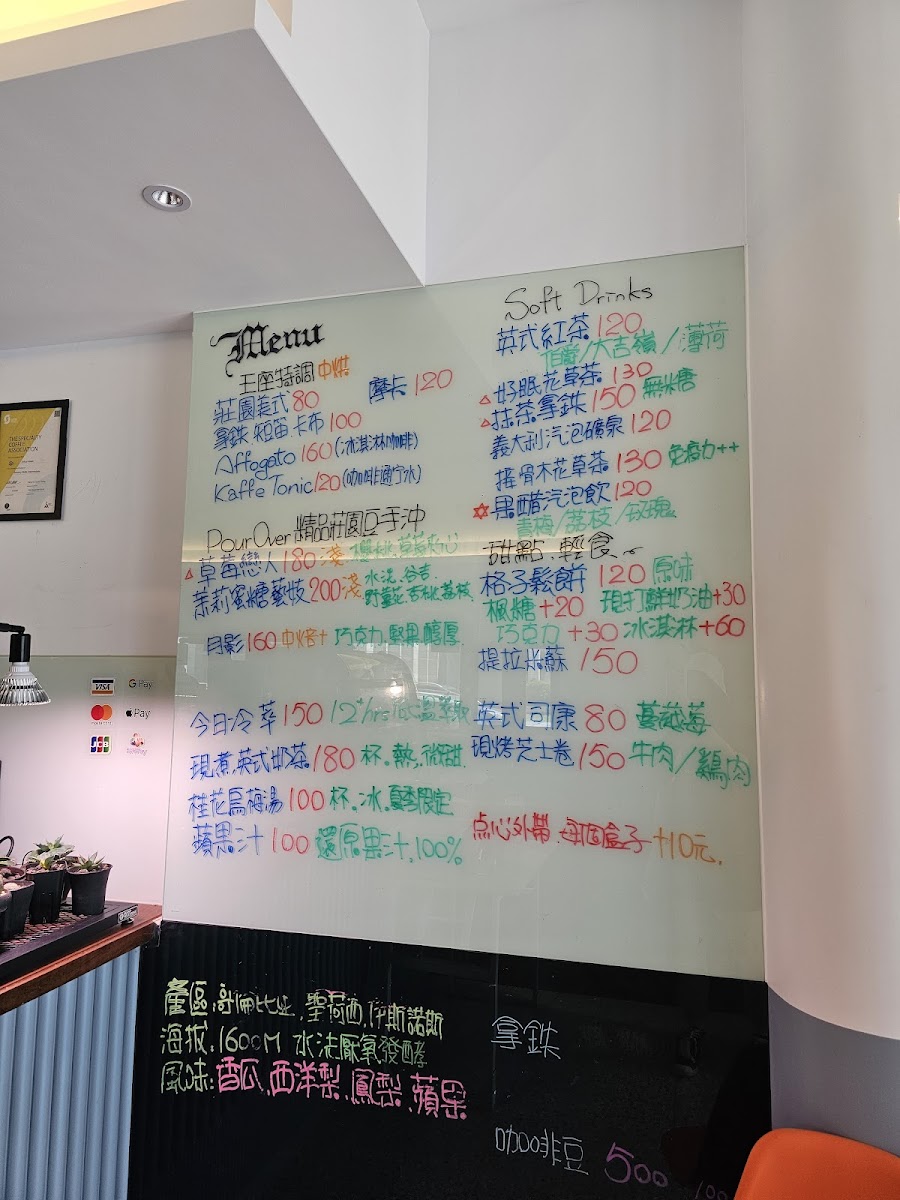 Menu
王座特調 中烘
莊園美式 80 摩卡 120
拿鉄 短笛 卡布 100
Affogato 160 (冰淇淋咖啡)
Kaffe Tonic 120 (咖啡通宁水)
PourOver 精品莊園豆手沖
草莓戀人 180 淺 櫻桃.草莓夾心
茉莉蜜糖藝妓 200 淺 水洗.谷吉
野薑花.杏桃.荔枝
月影 160 中焙+ 巧克力.堅果.醇厚
今日冷萃 150 12hrs低溫萃取
現煮.英式奶茶 180 杯.熱.微甜
桂花烏梅湯 100 杯.冰.夏季限定
蘋果汁 100 還原果汁.100%
Soft Drinks
英式紅茶 120
伯爵/大吉嶺/薄荷
好眠花草茶 130
抹茶拿鉄 150 無糖
義大利汽泡礦泉 120
接骨木花草茶 130 免疫力++
果醋汽泡飲 120
青梅/荔枝/玫瑰
甜點.輕食
格子鬆餅 120 原味
楓糖+20 現打鮮奶油+30
巧克力+30 冰淇淋+60
提拉米蘇 150
英式司康 80 蔓越莓
現烤芝士卷 150 牛肉/鷄肉
点心外帶.每個盒子+10元.
產區.哥倫比亞.聖荷西.伊斯諾斯
海拔.1600M 水洗厭氧發酵
風味:香瓜.西洋梨.鳳梨.蘋果
拿鉄
咖啡豆 500
VISA
G Pay
Pay
JCB
THE SPECIALTY
COFFEE
ASSOCIATION